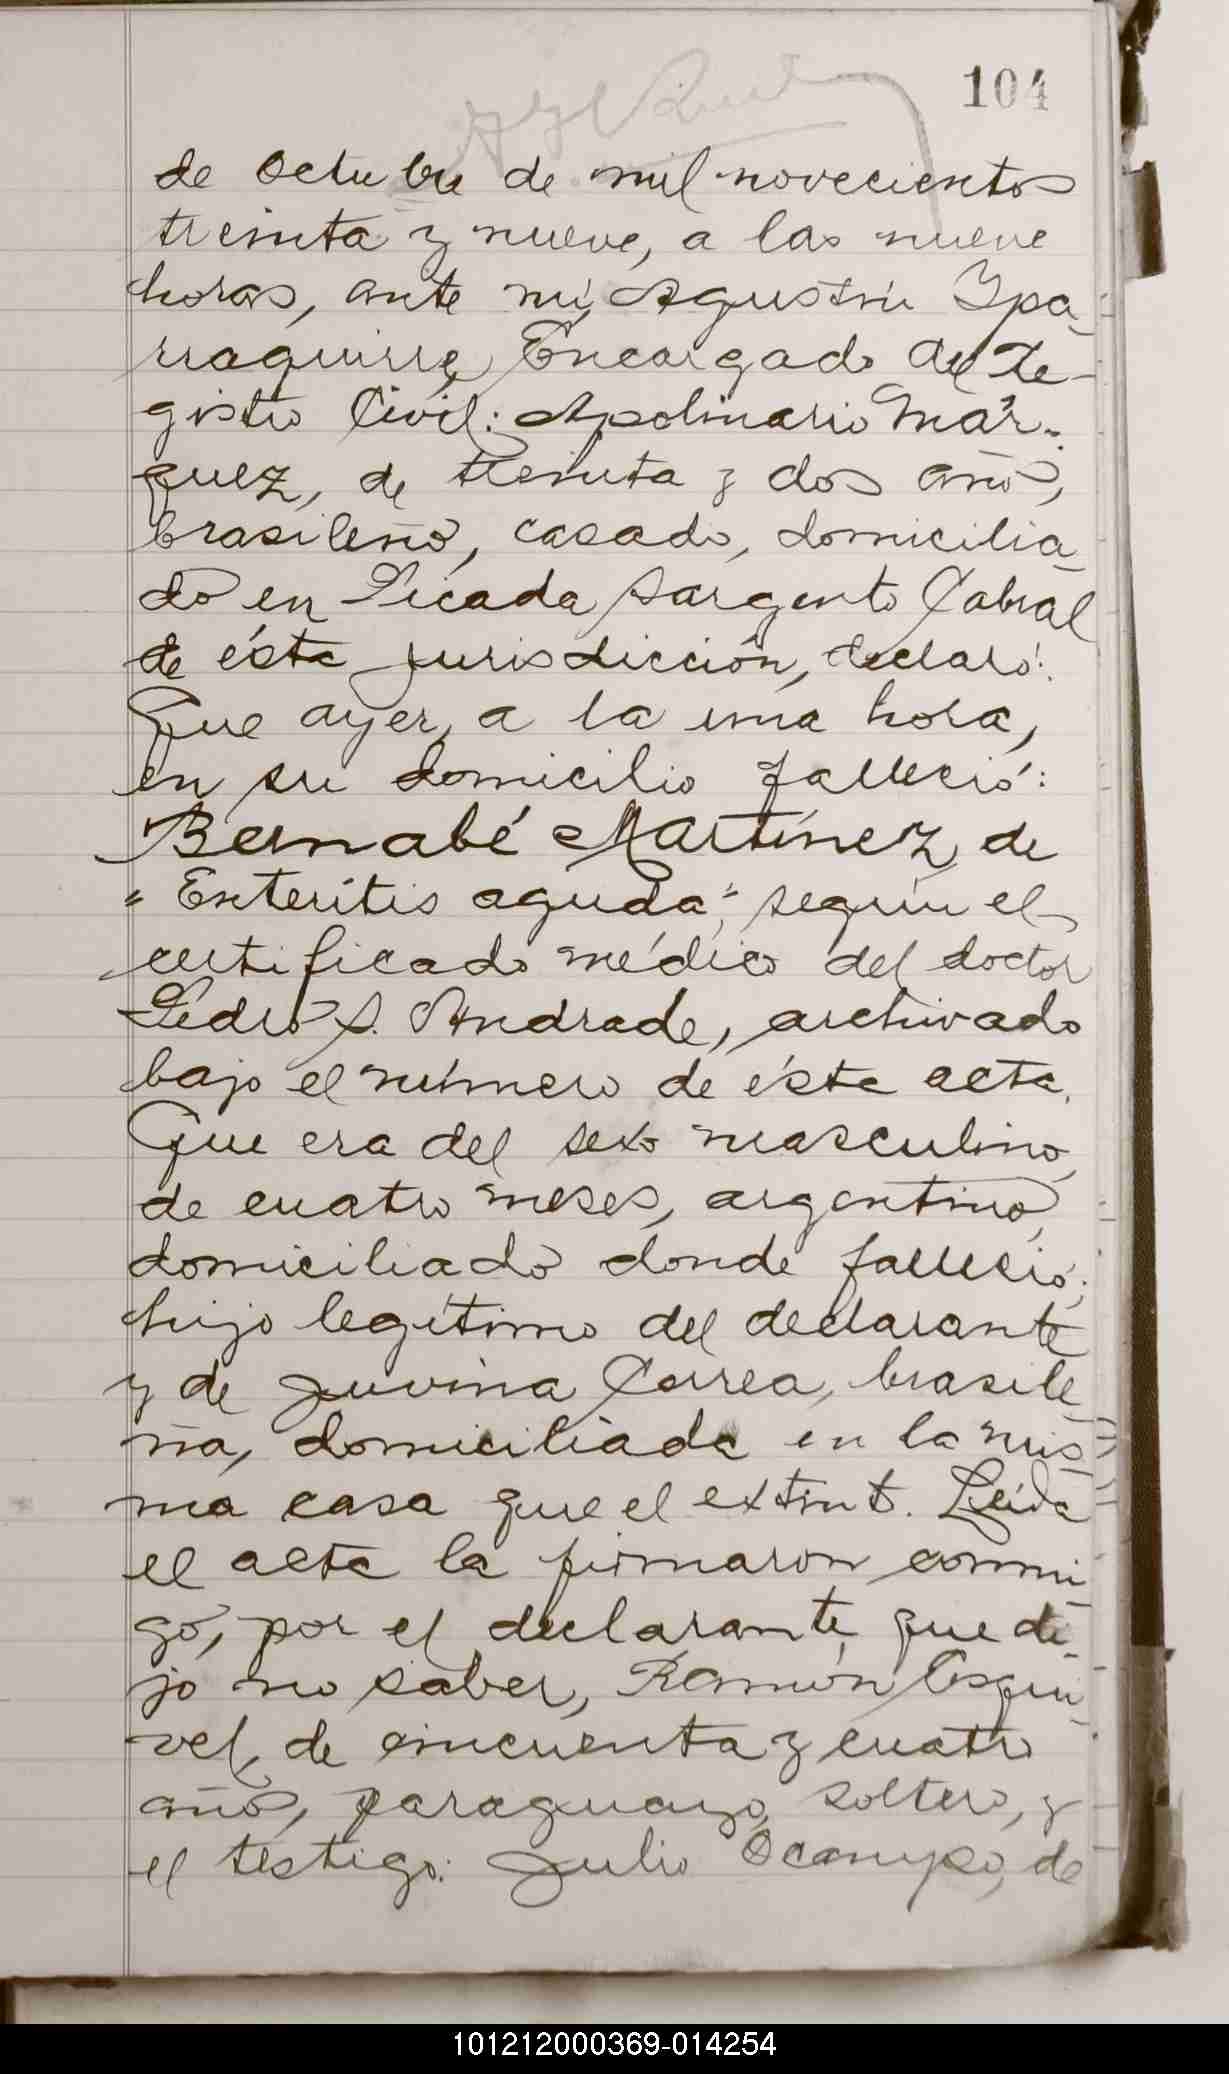 104
de Octubre de mil novecientos
treinta y nueve, a las nueve
horas, ante mí, Agustín Ypa-
rraguirre, Encargado del Re-
gistro Civil: Apolinario Már-
quez, de treinta y dos años,
brasileño, casado, domicilia-
do en Picada Sargento Cabral
de ésta jurisdicción, declaró:
Que ayer, a la una hora,
en su domicilio falleció:
Bernabé Martínez, de
"Enterítis aguda", según el
certificado médico del doctor
Pedro S. Andrade, archivado
bajo el número de ésta acta.
Que era del sexo masculino,
de cuatro meses, argentino,
domiciliado donde falleció;
hijo legítimo del declarante
y de Juvina Correa, brasile-
ña, domiciliada en la mis-
ma casa que el extinto. Leída
el acta la firmaron conmi-
go, por el declarante que di-
jo no saber, Ramón Esqui-
vel, de cincuenta y cuatro
años, paraguayo, soltero, y
el testigo: Julio Ocampo, de
101212000369-014254